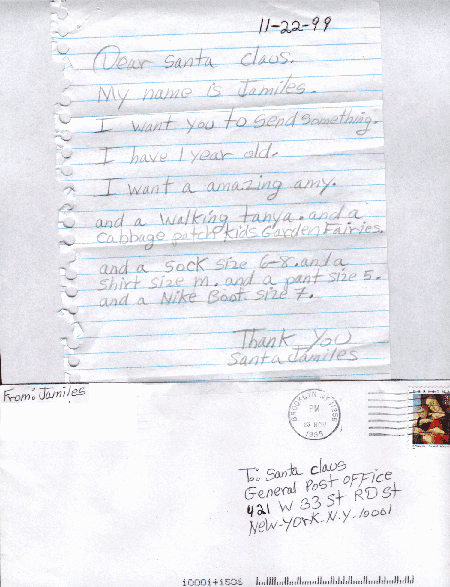 11-22-99
Dear Santa Claus.
My name is Jamiles.
I want you to send something.
I have 1 year old.
I want a amazing amy.
and a walking tanya. and a
cabbage patch kids Garden Fairies.
and a sock size 6-8. and a
shirt size m. and a pant size 5.
and a Nike Boot. size 7.
Thank You
Santa Jamiles
From: Jamiles
BROOKLYN NY
PM
NOV
To: Santa Claus
General Post Office
421 W 33 St RD St
New-York. N.Y. 10001
10001+1506